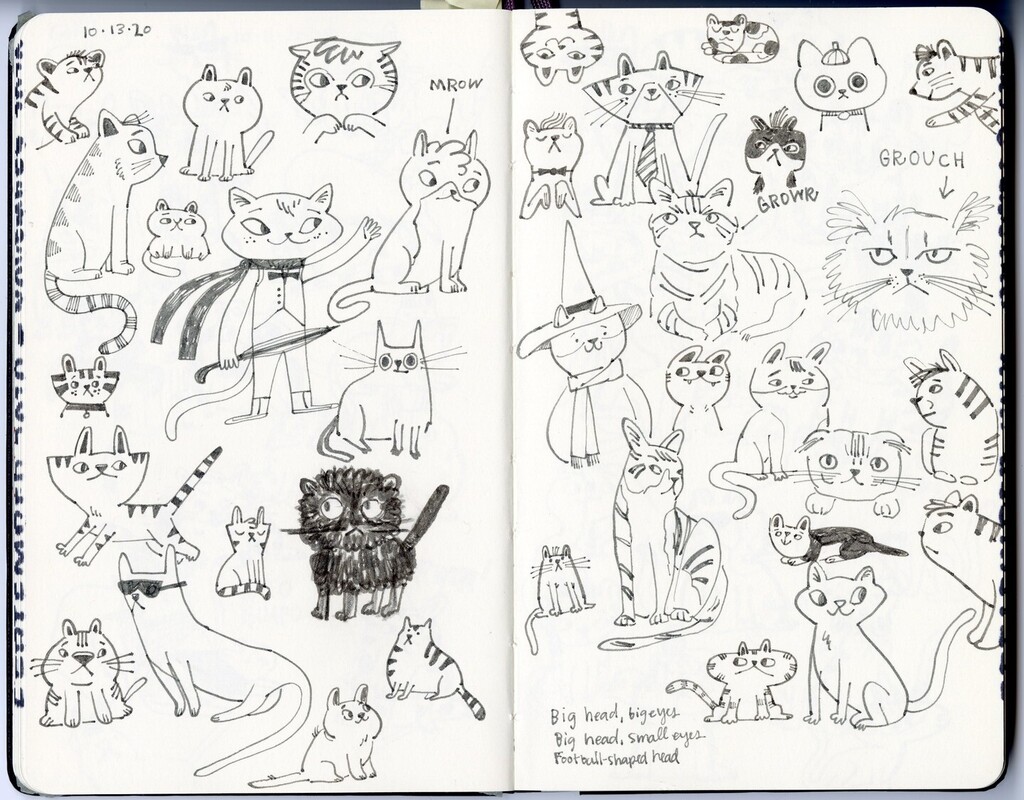 10.13.20
MROW
GROWR
GROUCH
Big head, big eyes
Big head, small eyes
Football-shaped head